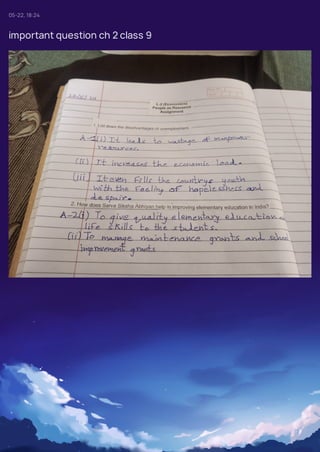 05-22, 18:24
important question ch 2 class 9
L-2 (Economics)
People as Resource
Assignment
1. List down the disadvantages of unemployment.
A-1(i) It leads to wastage of manpower
resources.
(ii) It increases the economic load.
(iii) It even fills the countrys youth
with the feeling of hopelessness and
despair.
2. How does Sarva Siksha Abhiyan help in improving elementary education in India?
A-2(i) To give quality elementary education
life skills to the students.
(ii) To manage maintenance grants and school
improvement grants